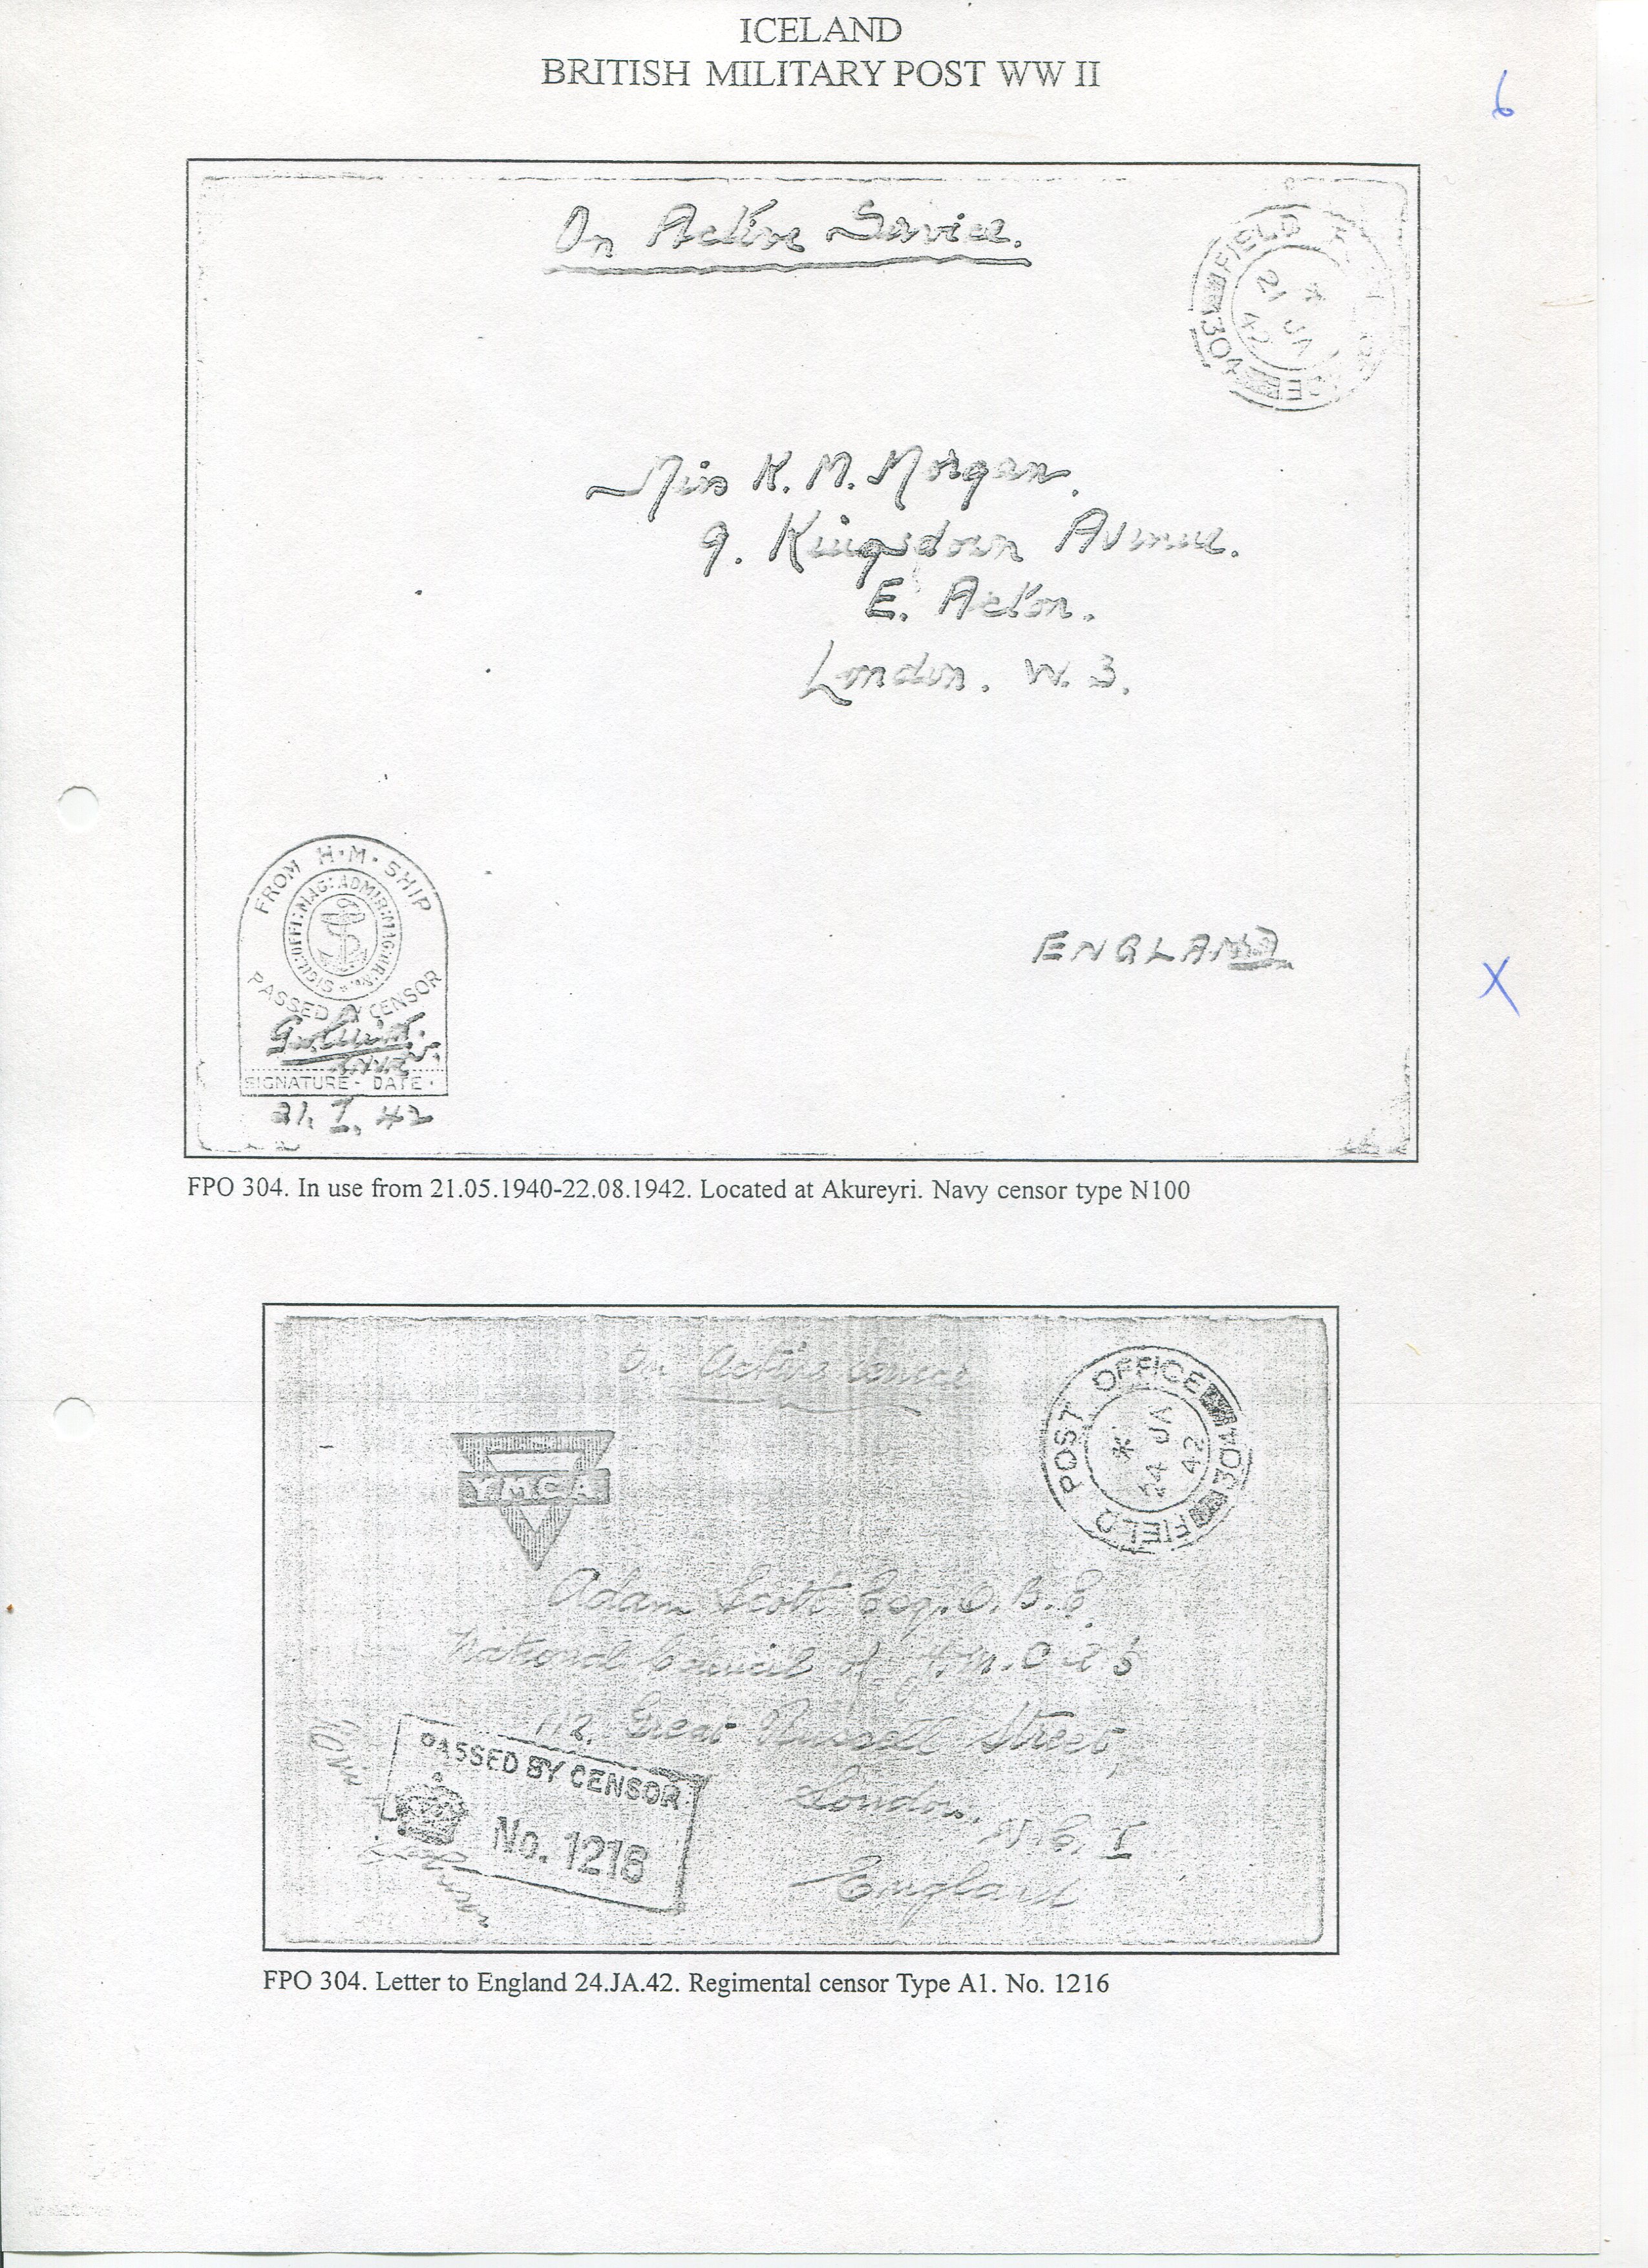 ICELAND
BRITISH MILITARY POST WW II
6
On Active Service.
FIELD
304
21 JA
42
Miss K. M. Morgan.
9. Kingsdown Avenue.
E. Acton.
London. W. 3.
FROM H·M· SHIP
SIGIL: OFFI: MAG: ADMIR: MAG:
PASSED BY CENSOR
SIGNATURE - DATE ·
21. I. 42
ENGLAND
X
FPO 304. In use from 21.05.1940-22.08.1942. Located at Akureyri. Navy censor type N100
On Active Service
FIELD POST OFFICE
304
24 JA
42
YMCA
Adam Scott Esq. O.B.E.
National Council of Y.M.C.A's
112, Great Russell Street,
London, W.C. I
England
PASSED BY CENSOR
No. 1216
FPO 304. Letter to England 24.JA.42. Regimental censor Type A1. No. 1216